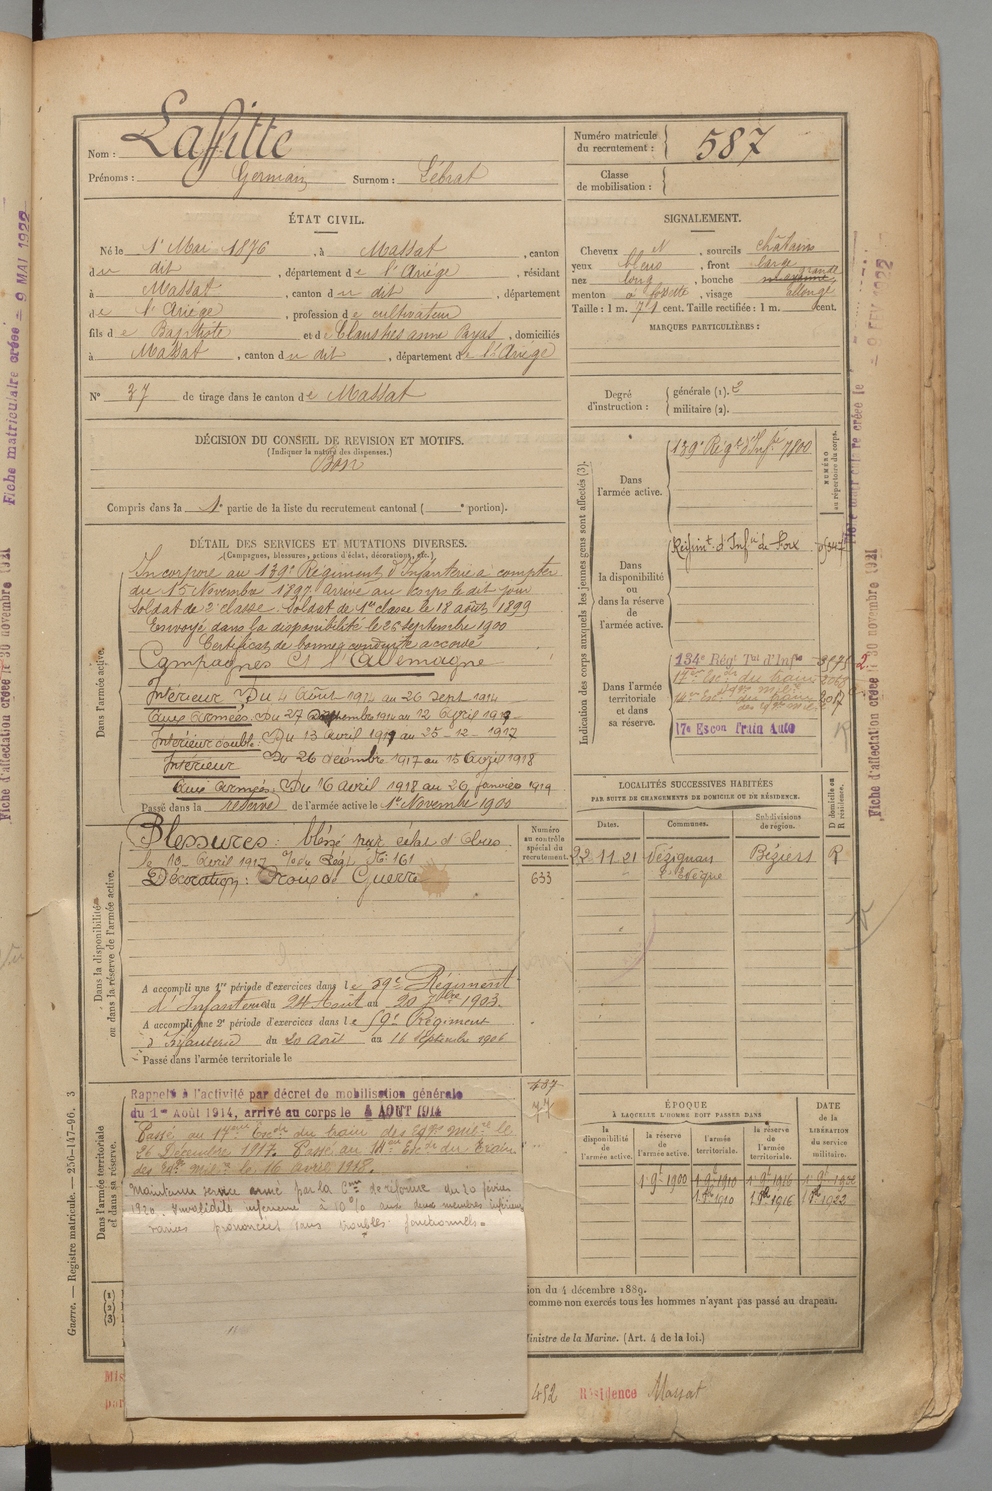 Nom : Lafitte
Prénoms : Germain Surnom : Lébrat
Numéro matricule du recrutement : 587
Classe de mobilisation :
ÉTAT CIVIL.
Né le 1er Mai 1876, à Massat, canton
du dit, département de l'Ariège, résidant
à Massat, canton du dit, département
de l'Ariège, profession de cultivateur
fils de Baptiste et de anne, domiciliés
à Massat, canton du dit, département de l'Ariège
N° 37 de tirage dans le canton de Massat
DÉCISION DU CONSEIL DE REVISION ET MOTIFS.
(Indiquer la nature des dispenses.)
Bon
Compris dans la 1e partie de la liste du recrutement cantonal ( e portion).
SIGNALEMENT.
Cheveux N, sourcils châtains
yeux bleus, front large
nez long, bouche grande
menton à fossette, visage allongé
Taille : 1 m. 71 cent. Taille rectifiée : 1 m. cent.
MARQUES PARTICULIÈRES :
Degré d'instruction : générale (1). 2
militaire (2).
DÉTAIL DES SERVICES ET MUTATIONS DIVERSES.
(Campagnes, blessures, actions d'éclat, décorations, etc.)
Dans l'armée active.
Incorporé au 139e Régiment d'Infanterie à compter
du 15 Novembre 1897 arrivé au corps le dit jour
Soldat de 2e classe. Soldat de 1re classe le 18 août 1899
Envoyé dans la disponibilité le 25 septembre 1900
Certificat de bonne conduite accordé
Campagnes Ct l'Allemagne
Intérieur Du 4 Août 1914 au 26 Sept 1914
Aux Armées. Du 27 Septembre 1914 au 12 Avril 1917
Intérieur double : Du 13 avril 1917 au 25-12-1917
Intérieur Du 26 décembre 1917 au 15 Avril 1918
Aux Armées. Du 16 avril 1918 au 26 Janvier 1919
Passé dans la réserve de l'armée active le 1er Novembre 1900
Dans la disponibilité ou dans la réserve de l'armée active.
Blessures : blessé par éclat d'obus
le 13 Avril 1917
Décoration : Croix de Guerre
Numéro au contrôle spécial du recrutement.
633
A accompli une 1re période d'exercices dans le 59e Régiment
d'Infanterie du 24 Août au 20 7bre 1903.
A accompli une 2e période d'exercices dans le 59e Régiment
d'Infanterie du 20 Août au 16 Septembre 1906
Passé dans l'armée territoriale le
Dans l'armée territoriale et dans sa réserve.
Rappelé à l'activité par décret de mobilisation générale
du 1er Août 1914, arrivé au corps le 4 AOUT 1914
Passé au 17eme Escon du train des Eqges Milres le
26 Décembre 1917. Passé au 14eme Esc du Train
des Eqges Milres le 16 avril 1918.
Maintenu service armé par la Con de réforme du 20 février
1920. Invalidité inférieure à 10% aux deux membres inférieurs
varices prononcées sans troubles fonctionnels.
Indication des corps auxquels les jeunes gens sont affectés (3).
NUMÉRO au répertoire du corps.
Dans l'armée active.
139e Régt d'Infie 7800
Dans la disponibilité ou dans la réserve de l'armée active.
Régimt d'Infie de Foix
Dans l'armée territoriale et dans sa réserve.
134e Régt Tal d'Infie
17e Escon Train Auto
LOCALITÉS SUCCESSIVES HABITÉES
PAR SUITE DE CHANGEMENTS DE DOMICILE OU DE RÉSIDENCE.
Dates. Communes. Subdivisions de région. D domicile ou R résidence.
22 11 21 Lézignan l'Evêque Béziers R
ÉPOQUE
À LAQUELLE L'HOMME DOIT PASSER DANS
la disponibilité de l'armée active. la réserve de l'armée active. l'armée territoriale. la réserve de l'armée territoriale.
DATE de la LIBÉRATION du service militaire.
1 9bre 1900 1 9bre 1910 1 9bre 1916 1 9bre 1922
1910 1916 1922
ion du 4 décembre 1889.
comme non exercés tous les hommes n'ayant pas passé au drapeau.
Ministre de la Marine. (Art. 4 de la loi.)
452 Résidence Massat
Guerre. — Registre matricule. — 256-147-96. 3
Fiche matriculaire créée = 9 MAI 1922
Fiche d'affectation créée le 30 novembre 1921
= 9 FEV 1922
Fiche d'affectation créée le 30 novembre 1921